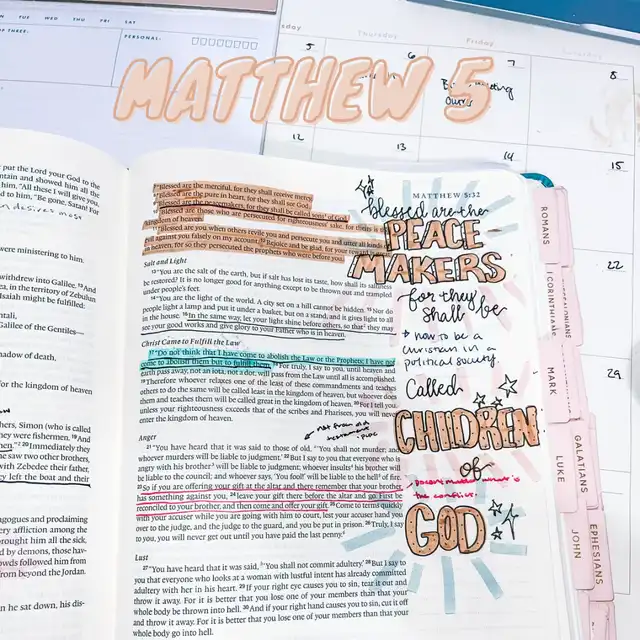 TUE WED THU FRI SAT
PERSONAL:
Thursday
Friday
5
6
7
8
12
13
14
15
22
29
MATTHEW 5
MATTHEW 5:32
"Blessed are the merciful, for they shall receive mercy.
"Blessed are the pure in heart, for they shall see God.
"Blessed are the peacemakers, for they shall be called sons of God.
"Blessed are those who are persecuted for righteousness' sake, for theirs is
kingdom of heaven.
"Blessed are you when others revile you and persecute you and utter all kinds
evil against you falsely on my account. 12 Rejoice and be glad, for your reward is
in heaven, for so they persecuted the prophets who were before you.
Salt and Light
13 "You are the salt of the earth, but if salt has lost its taste, how shall its saltiness
be restored? It is no longer good for anything except to be thrown out and trampled
under people's feet.
14 "You are the light of the world. A city set on a hill cannot be hidden. 15 Nor do
people light a lamp and put it under a basket, but on a stand, and it gives light to all
in the house. 16 In the same way, let your light shine before others, so that they may
see your good works and give glory to your Father who is in heaven.
Christ Came to Fulfill the Law
17 "Do not think that I have come to abolish the Law or the Prophets; I have not
come to abolish them but to fulfill them. 18 For truly, I say to you, until heaven and
earth pass away, not an iota, not a dot, will pass from the Law until all is accomplished.
19 Therefore whoever relaxes one of the least of these commandments and teaches
others to do the same will be called least in the kingdom of heaven, but whoever does
them and teaches them will be called great in the kingdom of heaven. 20 For I tell you,
unless your righteousness exceeds that of the scribes and Pharisees, you will never
enter the kingdom of heaven.
Anger
21 "You have heard that it was said to those of old, 'You shall not murder; and
whoever murders will be liable to judgment.' 22 But I say to you that everyone who is
angry with his brother will be liable to judgment; whoever insults his brother will
be liable to the council; and whoever says, 'You fool!' will be liable to the hell of fire.
23 So if you are offering your gift at the altar and there remember that your brother
has something against you, 24 leave your gift there before the altar and go. First be
reconciled to your brother, and then come and offer your gift. 25 Come to terms quickly
with your accuser while you are going with him to court, lest your accuser hand you
over to the judge, and the judge to the guard, and you be put in prison. 26 Truly, I say
to you, you will never get out until you have paid the last penny.
Lust
27 "You have heard that it was said, 'You shall not commit adultery.' 28 But I say to
you that everyone who looks at a woman with lustful intent has already committed
adultery with her in his heart. 29 If your right eye causes you to sin, tear it out and
throw it away. For it is better that you lose one of your members than that your
whole body be thrown into hell. 30 And if your right hand causes you to sin, cut it off
and throw it away. For it is better that you lose one of your members than that your
whole body go into hell.
blessed are the
PEACE
MAKERS
for they
shall be
how to be a
christian in a
political society.
Called
CHILDREN
of
GOD
ROMANS
1 CORINTHIANS
MARK
LUKE
JOHN
GALATIANS
EPHESIANS
put the Lord your God to
him, "All these I will give you,
to him, "Be gone, Satan! For
were ministering to him.
withdrew into Galilee. 13 And
in the territory of Zebulun
Isaiah might be fulfilled:
Galilee of the Gentiles—
shadow of death,
for the kingdom of heaven
Simon (who is called
they were fishermen. 19 And
Immediately they
he saw two other brothers,
with Zebedee their father,
they left the boat and their
every affliction among the
brought him all the sick,
d by demons, those hav-
crowds followed him from
from beyond the Jordan.
n he sat down, his dis-